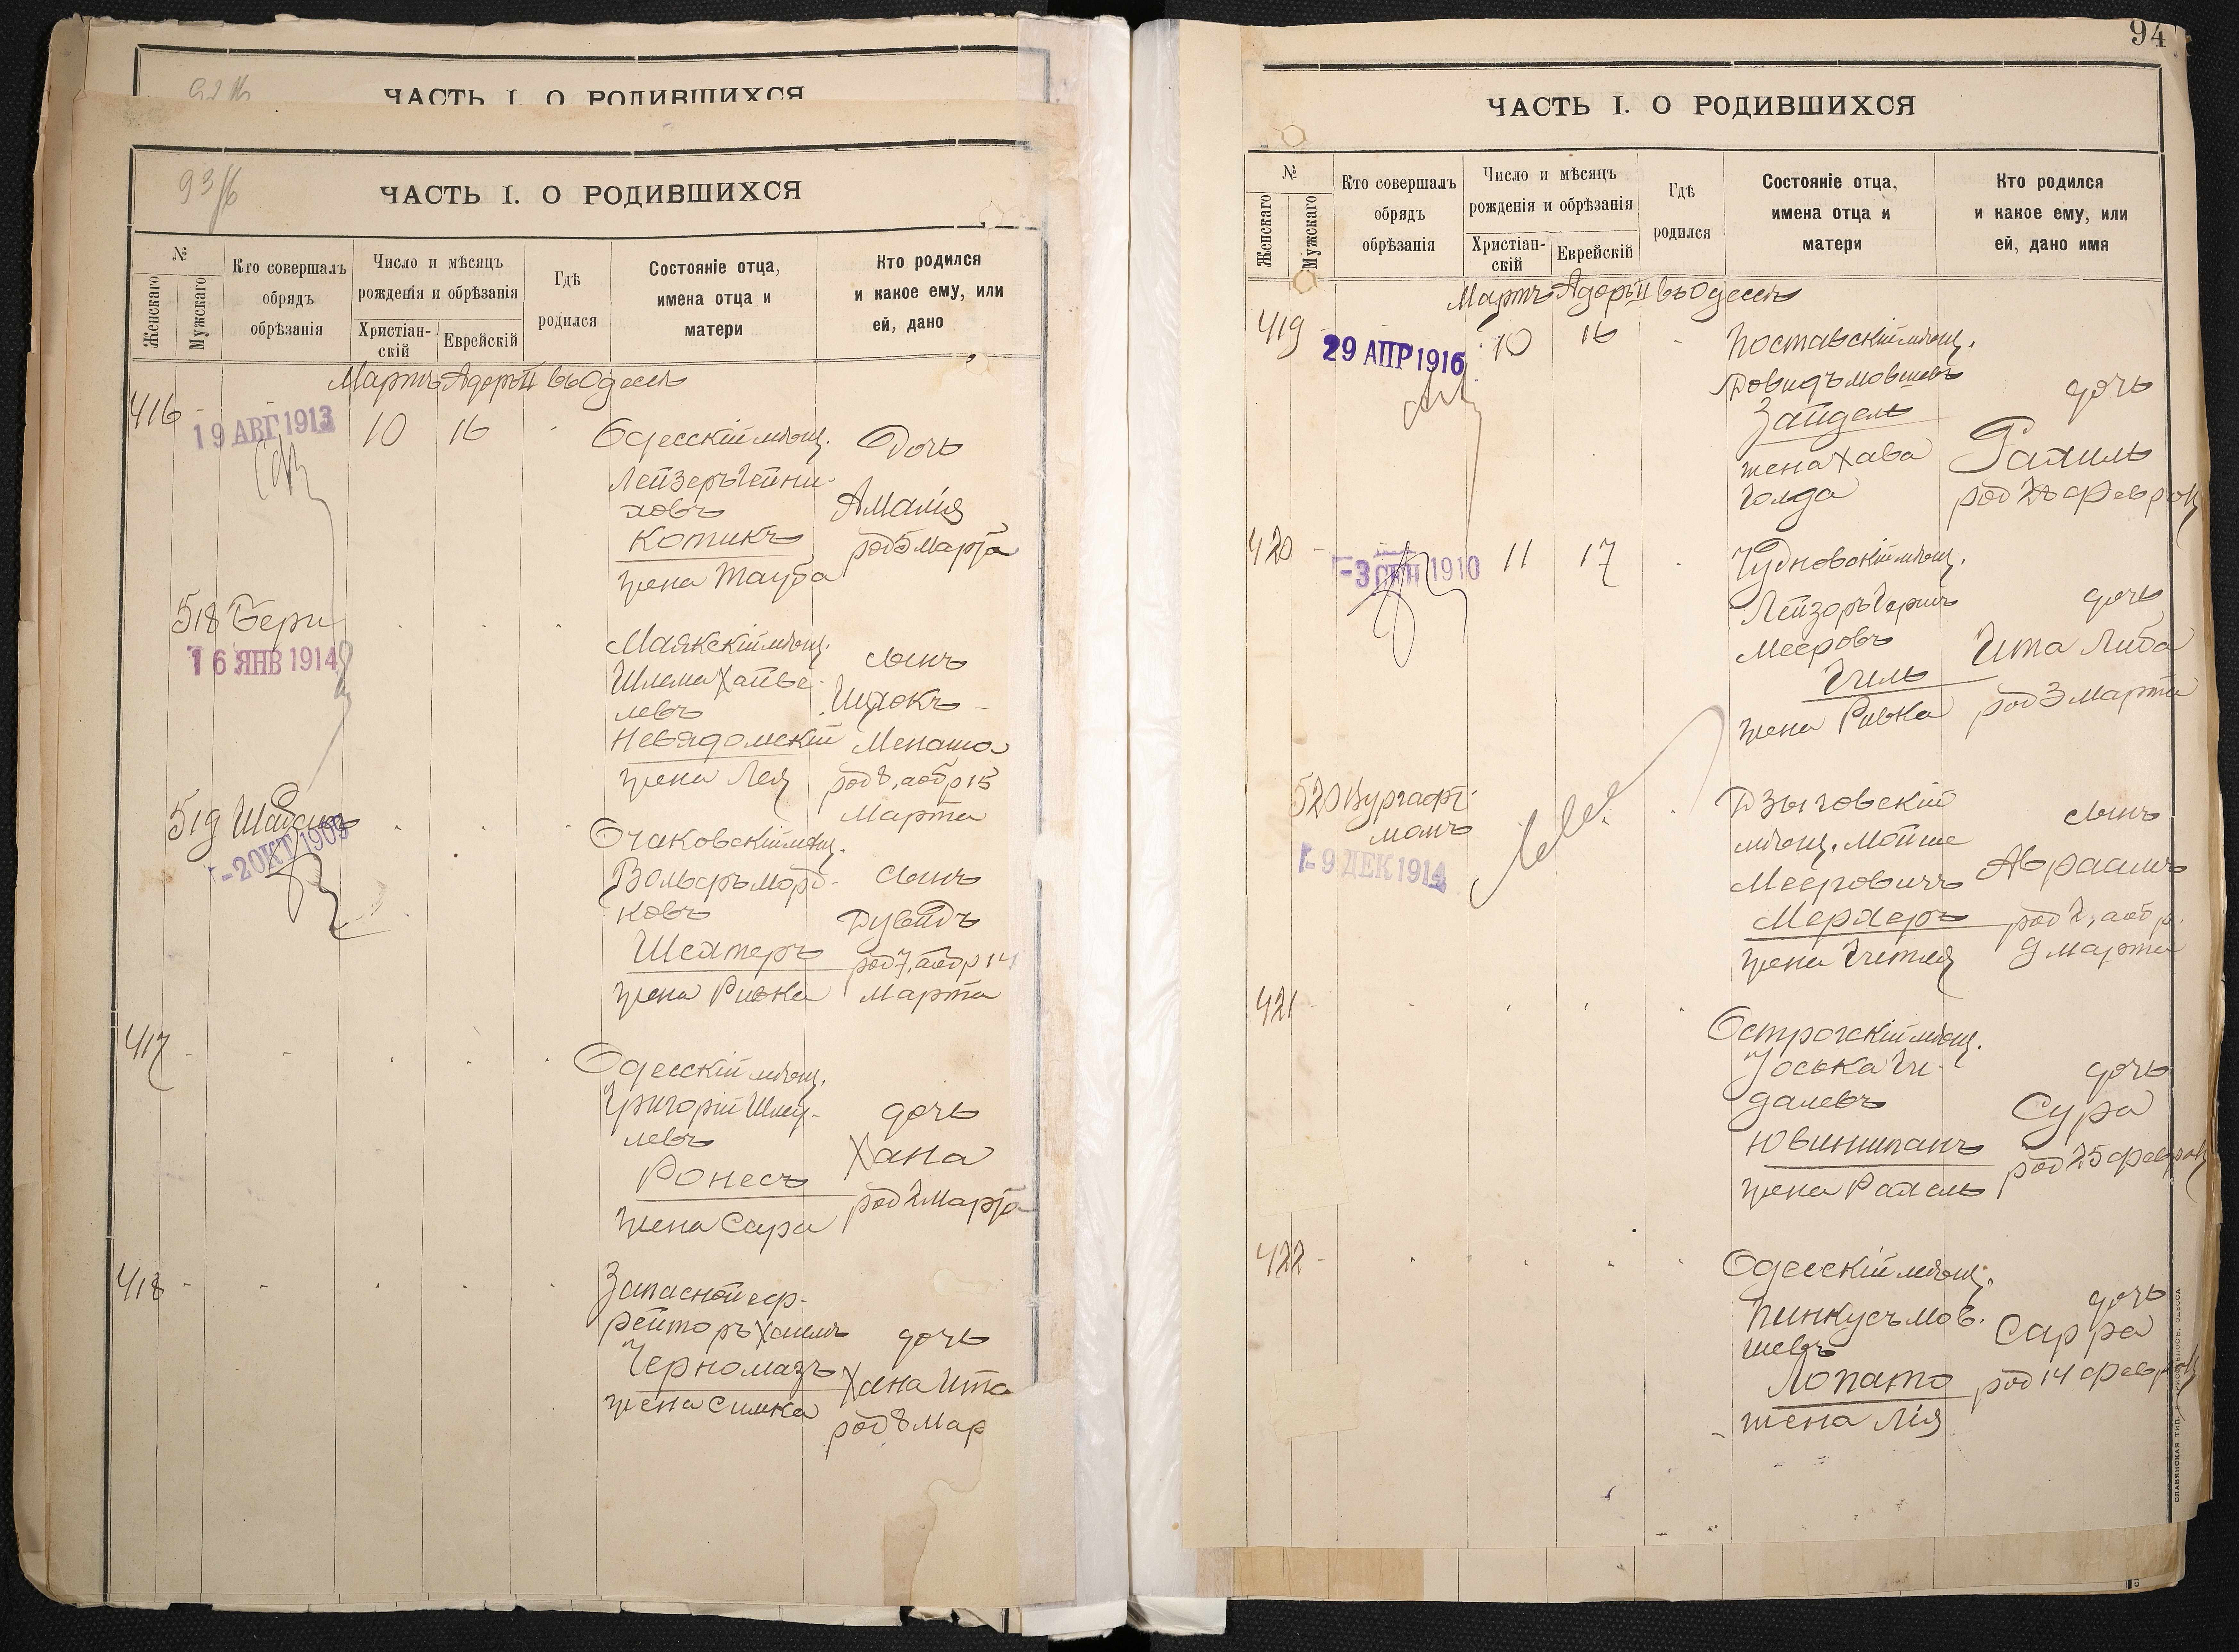 ЧАСТЬ I. О РОДИВШИХСЯ
93 /б
ЧАСТЬ I. О РОДИВШИХСЯ
№
Женскаго
Мужскаго
Кто совершалъ
обрядъ
обрѣзанія
Число и мѣсяцъ
рожденія и обрѣзанія
Христіан-
скій
Еврейскій
Гдѣ
родился
Состояніе отца,
имена отца и
матери
Кто родился
и какое ему, или
ей, дано
Мартъ Адоръ II въ Одессѣ
416 -
19 АВГ 1913
10
16
Одесскій мѣщ.
Лейзеръ Гейни-
ховъ
Котикъ
жена Тауба
Дочь
Амалія
род 5 Марта
518 Бери
16 ЯНВ 1914
Маякскій мѣщ.
Шлема Хайве-
левъ
Невядомскій
жена Лея
сынъ
Ицхокъ -
Менаша
род 8, а обр 15
Марта
519
-2 ОКТ 1909
Очаковскій мѣщ.
Вольфъ Морд-
ковъ
Шехтеръ
жена Ривка
сынъ
Дувидъ
род 7, а обр 14
Марта
417 -
Одесскій мѣщ.
Григорій Шму-
левъ
Ронесъ
жена Сура
дочь
Хана
род 2 Марта
418 -
Запасной еф-
рейторъ Хаимъ
Черномазъ
жена Симка
дочь
Хана Ита
род 8 Мар
94
ЧАСТЬ I. О РОДИВШИХСЯ
№
Женскаго
Мужскаго
Кто совершалъ
обрядъ
обрѣзанія
Число и мѣсяцъ
рожденія и обрѣзанія
Христіан-
скій
Еврейскій
Гдѣ
родился
Состояніе отца,
имена отца и
матери
Кто родился
и какое ему, или
ей, дано имя
Мартъ Адоръ II въ Одессѣ
419 -
29 АПР 1916
10
16
Поставскій мѣщ.
Довидъ Мовшевъ
Зайдель
жена Хава
Голда
дочь
Рахиль
род 28 февраля
420 -
-3 СЕН 1910
11
17
Чудновскій мѣщ.
Лейзоръ Гершъ
Мееровъ
Гиль
жена Ривка
дочь
Гита Либа
род 3 Марта
520 Вургафт-
манъ
-9 ДЕК 1914
Дзыговскій
мѣщ. Мойше
Мееровичъ
Мерхеръ
жена Гитля
сынъ
Авраамъ
род 2, а обр.
9 Марта
421 -
Острогскій мѣщ.
Іоська Ги-
далевъ
жена Рахель
дочь
Сура
род 25 февраля
422 -
Одесскій мѣщ.
Пинкусъ Мов-
шевъ
Лопато
жена Лія
дочь
Сарра
род 14 февраля